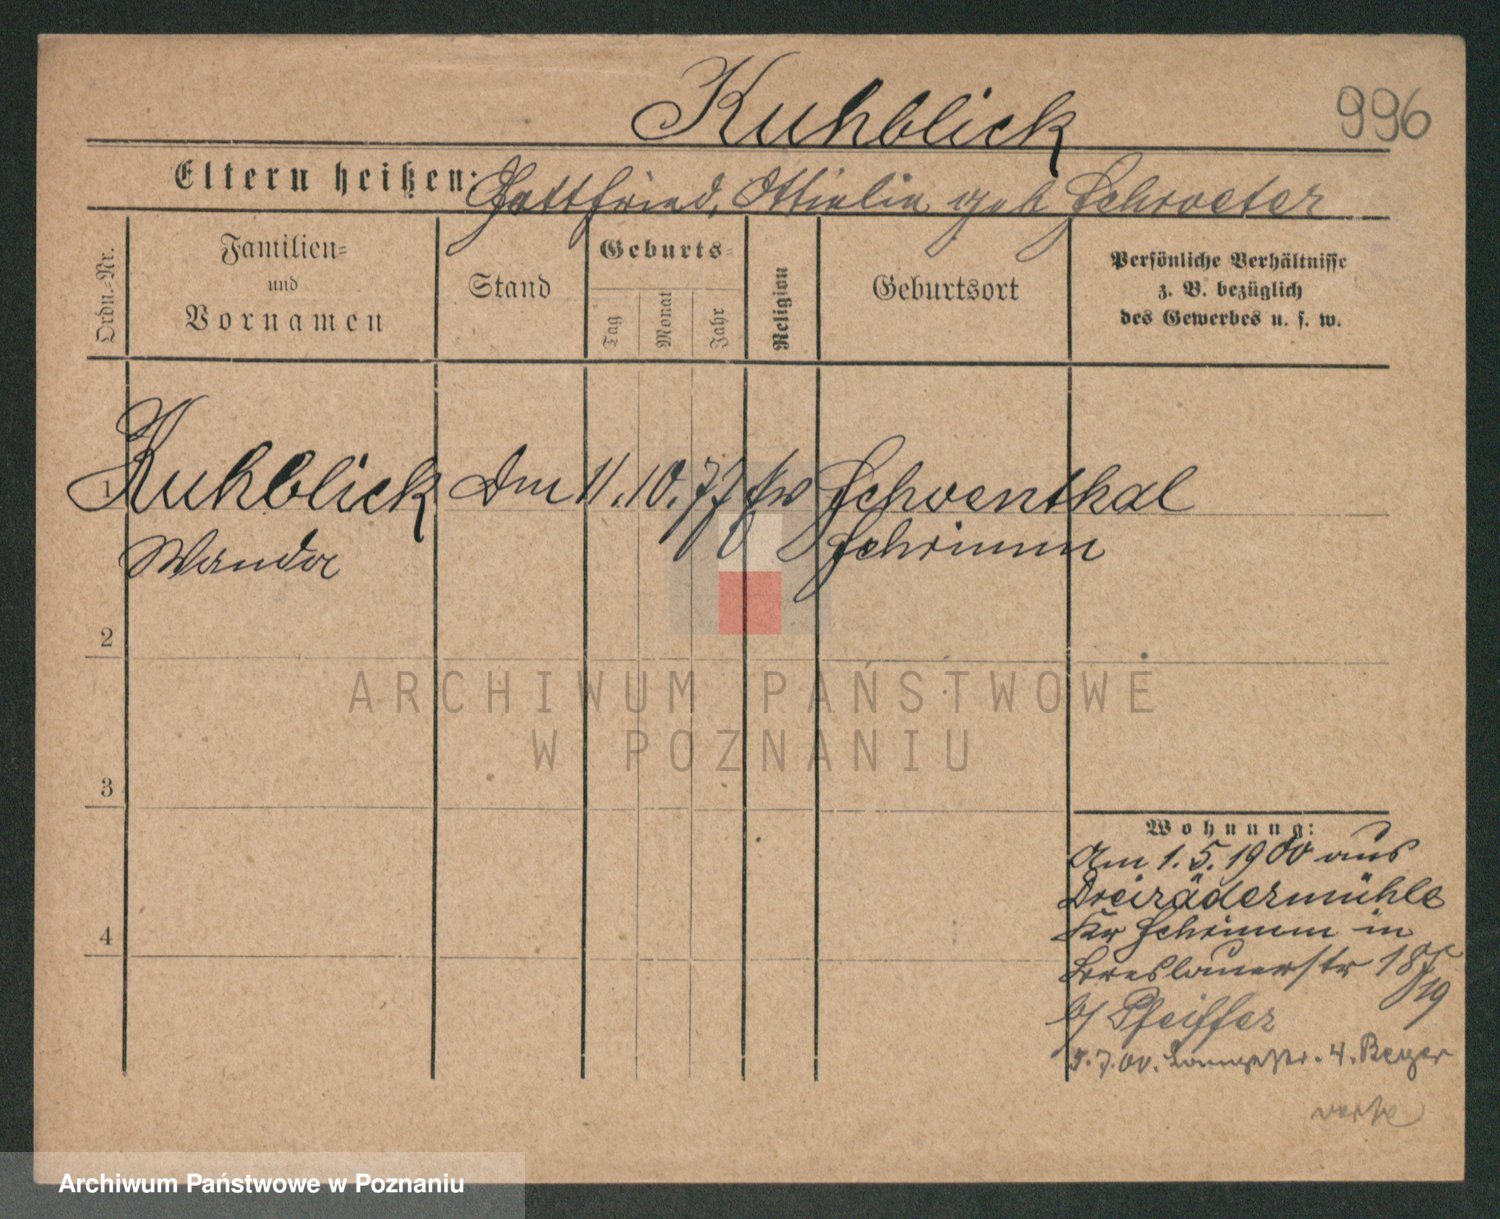 Kuhblick
996
Eltern heißen: Gottfried, Ottielie geb Schroeter
Ordn.-Nr.
Familien-
und
Vornamen
Stand
Geburts-
Tag
Monat
Jahr
Religion
Geburtsort
Persönliche Verhältnisse
z. B. bezüglich
des Gewerbes u. s. w.
Kuhblick Dm 11. 10. 77 ev Schoenthal
Wanda Schrimm
2
3
4
Wohnung:
Am 1. 5. 1900 aus
Dreirädermühle
Kr Schrimm in
Breslauerstr 18/19
b/ Pfeiffer
5.7.00. Langestr. 4. Beyer
ARCHIWUM PAŃSTWOWE
W POZNANIU
Archiwum Państwowe w Poznaniu